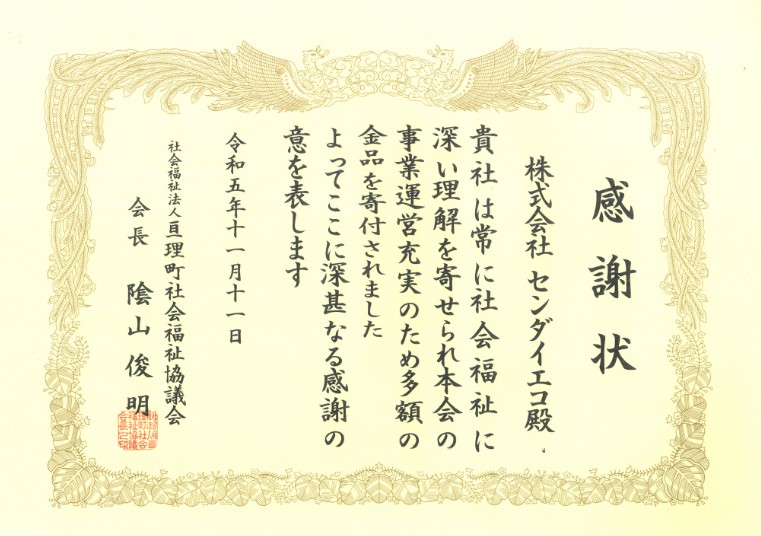 感謝状
株式会社 センダイエコ殿
貴社は常に社会福祉に
深い理解を寄せられ本会の
事業運営充実のため多額の
金品を寄付されました
よってここに深甚なる感謝の
意を表します
令和五年十一月十一日
社会福祉法人亘理町社会福祉協議会
会長 陰山俊明